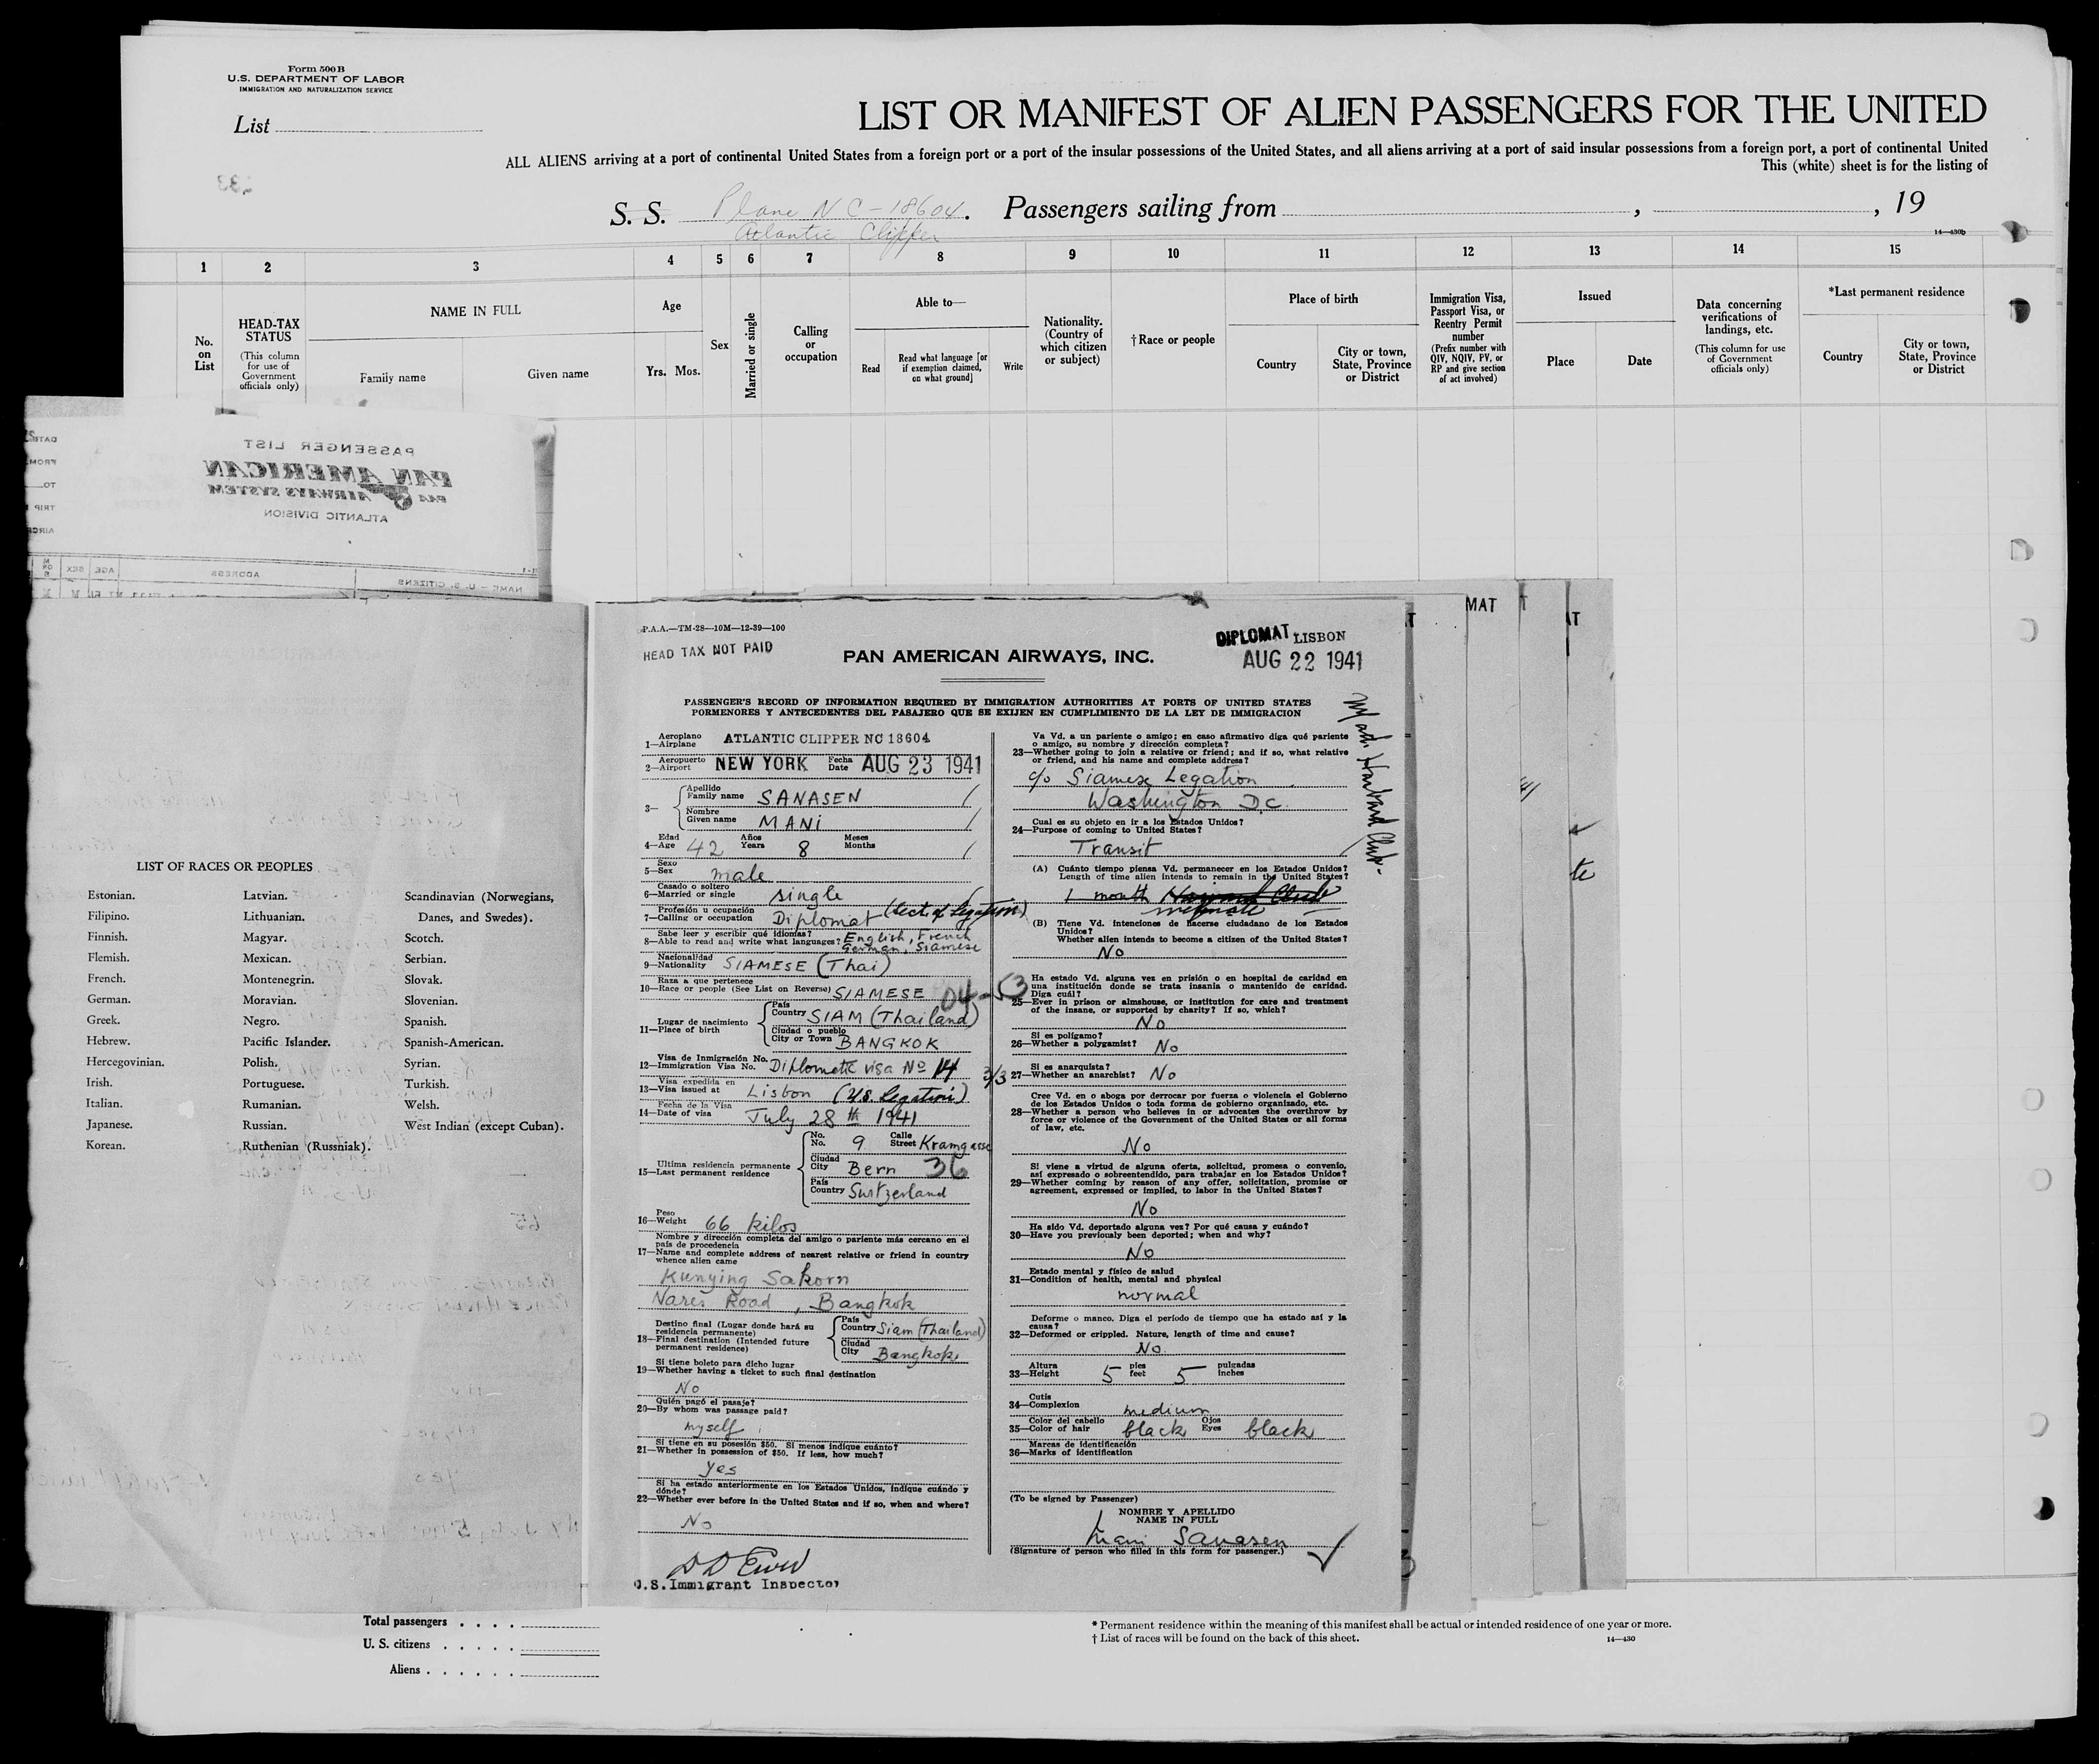 Form 500 B
U.S. DEPARTMENT OF LABOR
IMMIGRATION AND NATURALIZATION SERVICE
List
LIST OR MANIFEST OF ALIEN PASSENGERS FOR THE UNITED
ALL ALIENS arriving at a port of continental United States from a foreign port or a port of the insular possessions of the United States, and all aliens arriving at a port of said insular possessions from a foreign port, a port of continental United
This (white) sheet is for the listing of
S. S. Plane NC-18604. Passengers sailing from , , 19
Atlantic Clipper
14—430b
1 2 3 4 5 6 7 8 9 10 11 12 13 14 15
No. on List
HEAD-TAX STATUS
(This column for use of Government officials only)
NAME IN FULL
Family name
Given name
Age
Yrs. Mos.
Sex
Married or single
Calling or occupation
Able to—
Read
Read what language [or if exemption claimed, on what ground]
Write
Nationality. (Country of which citizen or subject)
†Race or people
Place of birth
Country
City or town, State, Province or District
Immigration Visa, Passport Visa, or Reentry Permit number
(Prefix number with QIV, NQIV, PV, or RP and give section of act involved)
Issued
Place
Date
Data concerning verifications of landings, etc.
(This column for use of Government officials only)
*Last permanent residence
Country
City or town, State, Province or District
PASSENGER LIST
PAN AMERICAN
PAA AIRWAYS SYSTEM
ATLANTIC DIVISION
ADDRESS
AGE SEX
NAME – U. S. CITIZENS
LIST OF RACES OR PEOPLES
Estonian. Latvian. Scandinavian (Norwegians,
Filipino. Lithuanian. Danes, and Swedes).
Finnish. Magyar. Scotch.
Flemish. Mexican. Serbian.
French. Montenegrin. Slovak.
German. Moravian. Slovenian.
Greek. Negro. Spanish.
Hebrew. Pacific Islander. Spanish-American.
Hercegovinian. Polish. Syrian.
Irish. Portuguese. Turkish.
Italian. Rumanian. Welsh.
Japanese. Russian. West Indian (except Cuban).
Korean. Ruthenian (Russniak).
P.A.A.—TM-28—10M—12-39—100
HEAD TAX NOT PAID
DIPLOMAT LISBON
AUG 22 1941
PAN AMERICAN AIRWAYS, INC.
PASSENGER'S RECORD OF INFORMATION REQUIRED BY IMMIGRATION AUTHORITIES AT PORTS OF UNITED STATES
PORMENORES Y ANTECEDENTES DEL PASAJERO QUE SE EXIJEN EN CUMPLIMIENTO DE LA LEY DE IMMIGRACION
Aeroplano
1—Airplane ATLANTIC CLIPPER NC 18604
Aeropuerto Fecha
2—Airport NEW YORK Date AUG 23 1941
Apellido
Family name SANASEN
3—
Nombre
Given name MANI
Edad Años Meses
4—Age 42 Years 8 Months
Sexo
5—Sex male
Casado o soltero
6—Married or single single
Profesión u ocupación
7—Calling or occupation Diplomat (Sect. of Legation)
Sabe leer y escribir qué idiomas?
8—Able to read and write what languages? English, French
German, Siamese
Nacionalidad
9—Nationality SIAMESE (Thai)
Raza a que pertenece
10—Race or people (See List on Reverse) SIAMESE
País
Country SIAM (Thailand)
Lugar de nacimiento
11—Place of birth
Ciudad o pueblo
City or Town BANGKOK
Visa de Inmigración No.
12—Immigration Visa No. Diplomatic visa No 14
Visa expedida en
13—Visa issued at Lisbon (U.S. Legation)
Fecha de la Visa
14—Date of visa July 28th 1941
No. Calle
No. 9 Street Kramgasse
Ultima residencia permanente
15—Last permanent residence
Ciudad
City Bern 36
País
Country Switzerland
Peso
16—Weight 66 kilos
Nombre y dirección completa del amigo o pariente más cercano en el país de procedencia
17—Name and complete address of nearest relative or friend in country whence alien came
Kunying Sakorn
Nares Road, Bangkok
Destino final (Lugar donde hará su residencia permanente)
18—Final destination (Intended future permanent residence)
País
Country Siam (Thailand)
Ciudad
City Bangkok
Si tiene boleto para dicho lugar
19—Whether having a ticket to such final destination
No
Quién pagó el pasaje?
20—By whom was passage paid?
myself
Si tiene en su posesión $50. Si menos indique cuánto?
21—Whether in possession of $50. If less, how much?
Yes
Si ha estado anteriormente en los Estados Unidos, indique cuándo y dónde?
22—Whether ever before in the United States and if so, when and where?
No
U.S. Immigrant Inspector
Va Vd. a un pariente o amigo; en caso afirmativo diga qué pariente
o amigo, su nombre y dirección completa?
23—Whether going to join a relative or friend; and if so, what relative
or friend, and his name and complete address?
c/o Siamese Legation
Washington D.C.
Cual es su objeto en ir a los Estados Unidos?
24—Purpose of coming to United States?
Transit
(A) Cuánto tiempo piensa Vd. permanecer en los Estados Unidos?
Length of time alien intends to remain in the United States?
1 month
(B) Tiene Vd. intenciones de hacerse ciudadano de los Estados
Unidos?
Whether alien intends to become a citizen of the United States?
No
Ha estado Vd. alguna vez en prisión o en hospital de caridad en
una institución donde se trata insania o mantenido de caridad.
Diga cuál?
25—Ever in prison or almshouse, or institution for care and treatment
of the insane, or supported by charity? If so, which?
No
Si es polígamo?
26—Whether a polygamist? No
Si es anarquista?
27—Whether an anarchist? No
Cree Vd. en o aboga por derrocar por fuerza o violencia el Gobierno
de los Estados Unidos o toda forma de gobierno organizado, etc.
28—Whether a person who believes in or advocates the overthrow by
force or violence of the Government of the United States or all forms
of law, etc.
No
Si viene a virtud de alguna oferta, solicitud, promesa o convenio,
así expresado o sobreentendido, para trabajar en los Estados Unidos?
29—Whether coming by reason of any offer, solicitation, promise or
agreement, expressed or implied, to labor in the United States?
No
Ha sido Vd. deportado alguna vez? Por qué causa y cuándo?
30—Have you previously been deported; when and why?
No
Estado mental y físico de salud
31—Condition of health, mental and physical
normal
Deforme o manco. Diga el período de tiempo que ha estado así y la
causa?
32—Deformed or crippled. Nature, length of time and cause?
No.
Altura pies pulgadas
33—Height 5 feet 5 inches
Cutis
34—Complexion medium
Color del cabello Ojos
35—Color of hair black Eyes black
Marcas de identificación
36—Marks of identification
(To be signed by Passenger)
NOMBRE Y APELLIDO
NAME IN FULL
Mani Sanasen
(Signature of person who filled in this form for passenger.)
Harvard Club
MAT
Total passengers
U. S. citizens
Aliens
* Permanent residence within the meaning of this manifest shall be actual or intended residence of one year or more.
† List of races will be found on the back of this sheet.
14—430